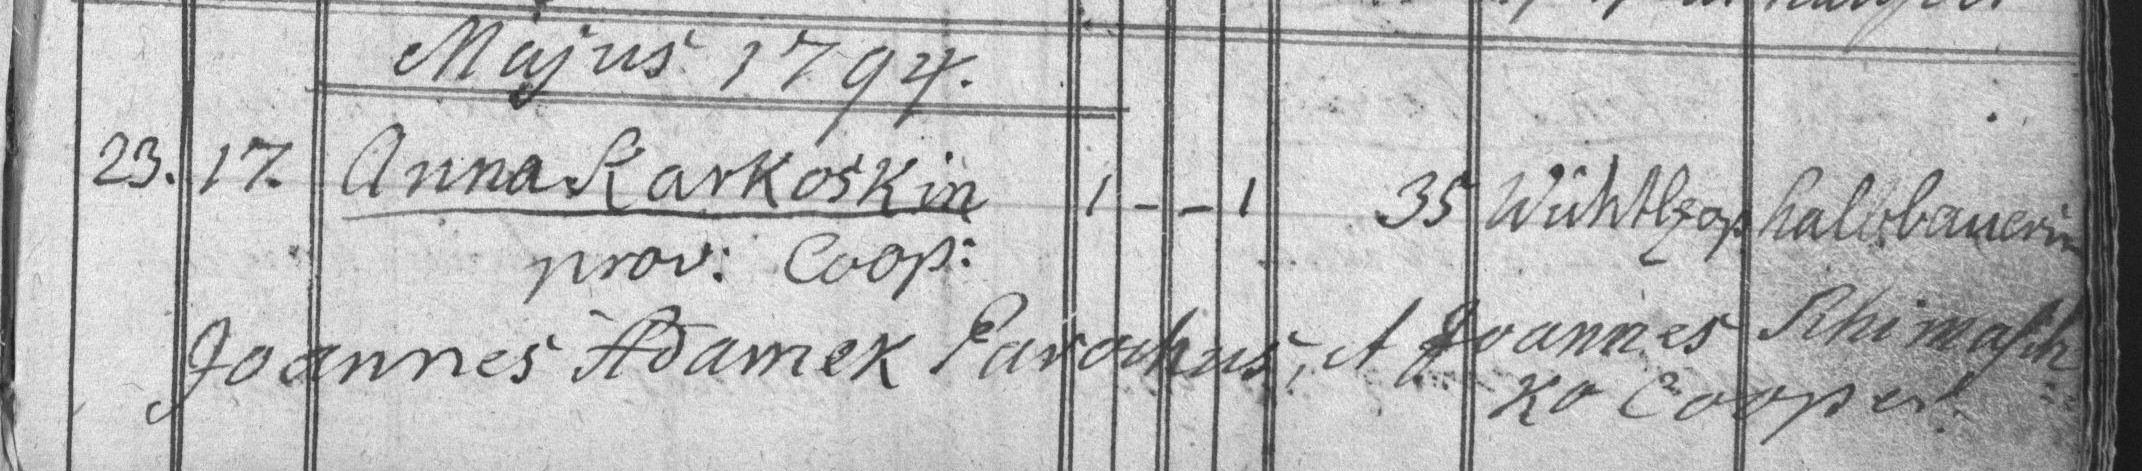 Majus 1794.
23. 17. Anna Karkoskin 1 - - 1 35 halbbauerin
prov: Coop:
Joannes Adamek Parochus, et Joannes Rhimasch
ko Cooper